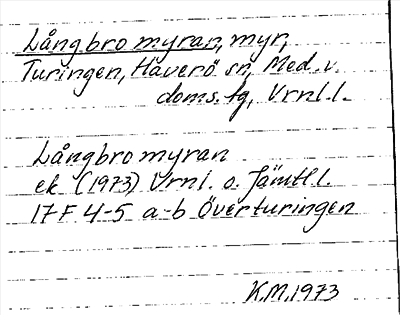 Långbromyran, myr,
Turingen, Haverö sn, Med. v.
doms. tg, Vrnl. l.
Långbromyran
ek (1973) Vrnl. o. Jämtl l.
17 F 4-5 a-b Överturingen
K.M. 1973